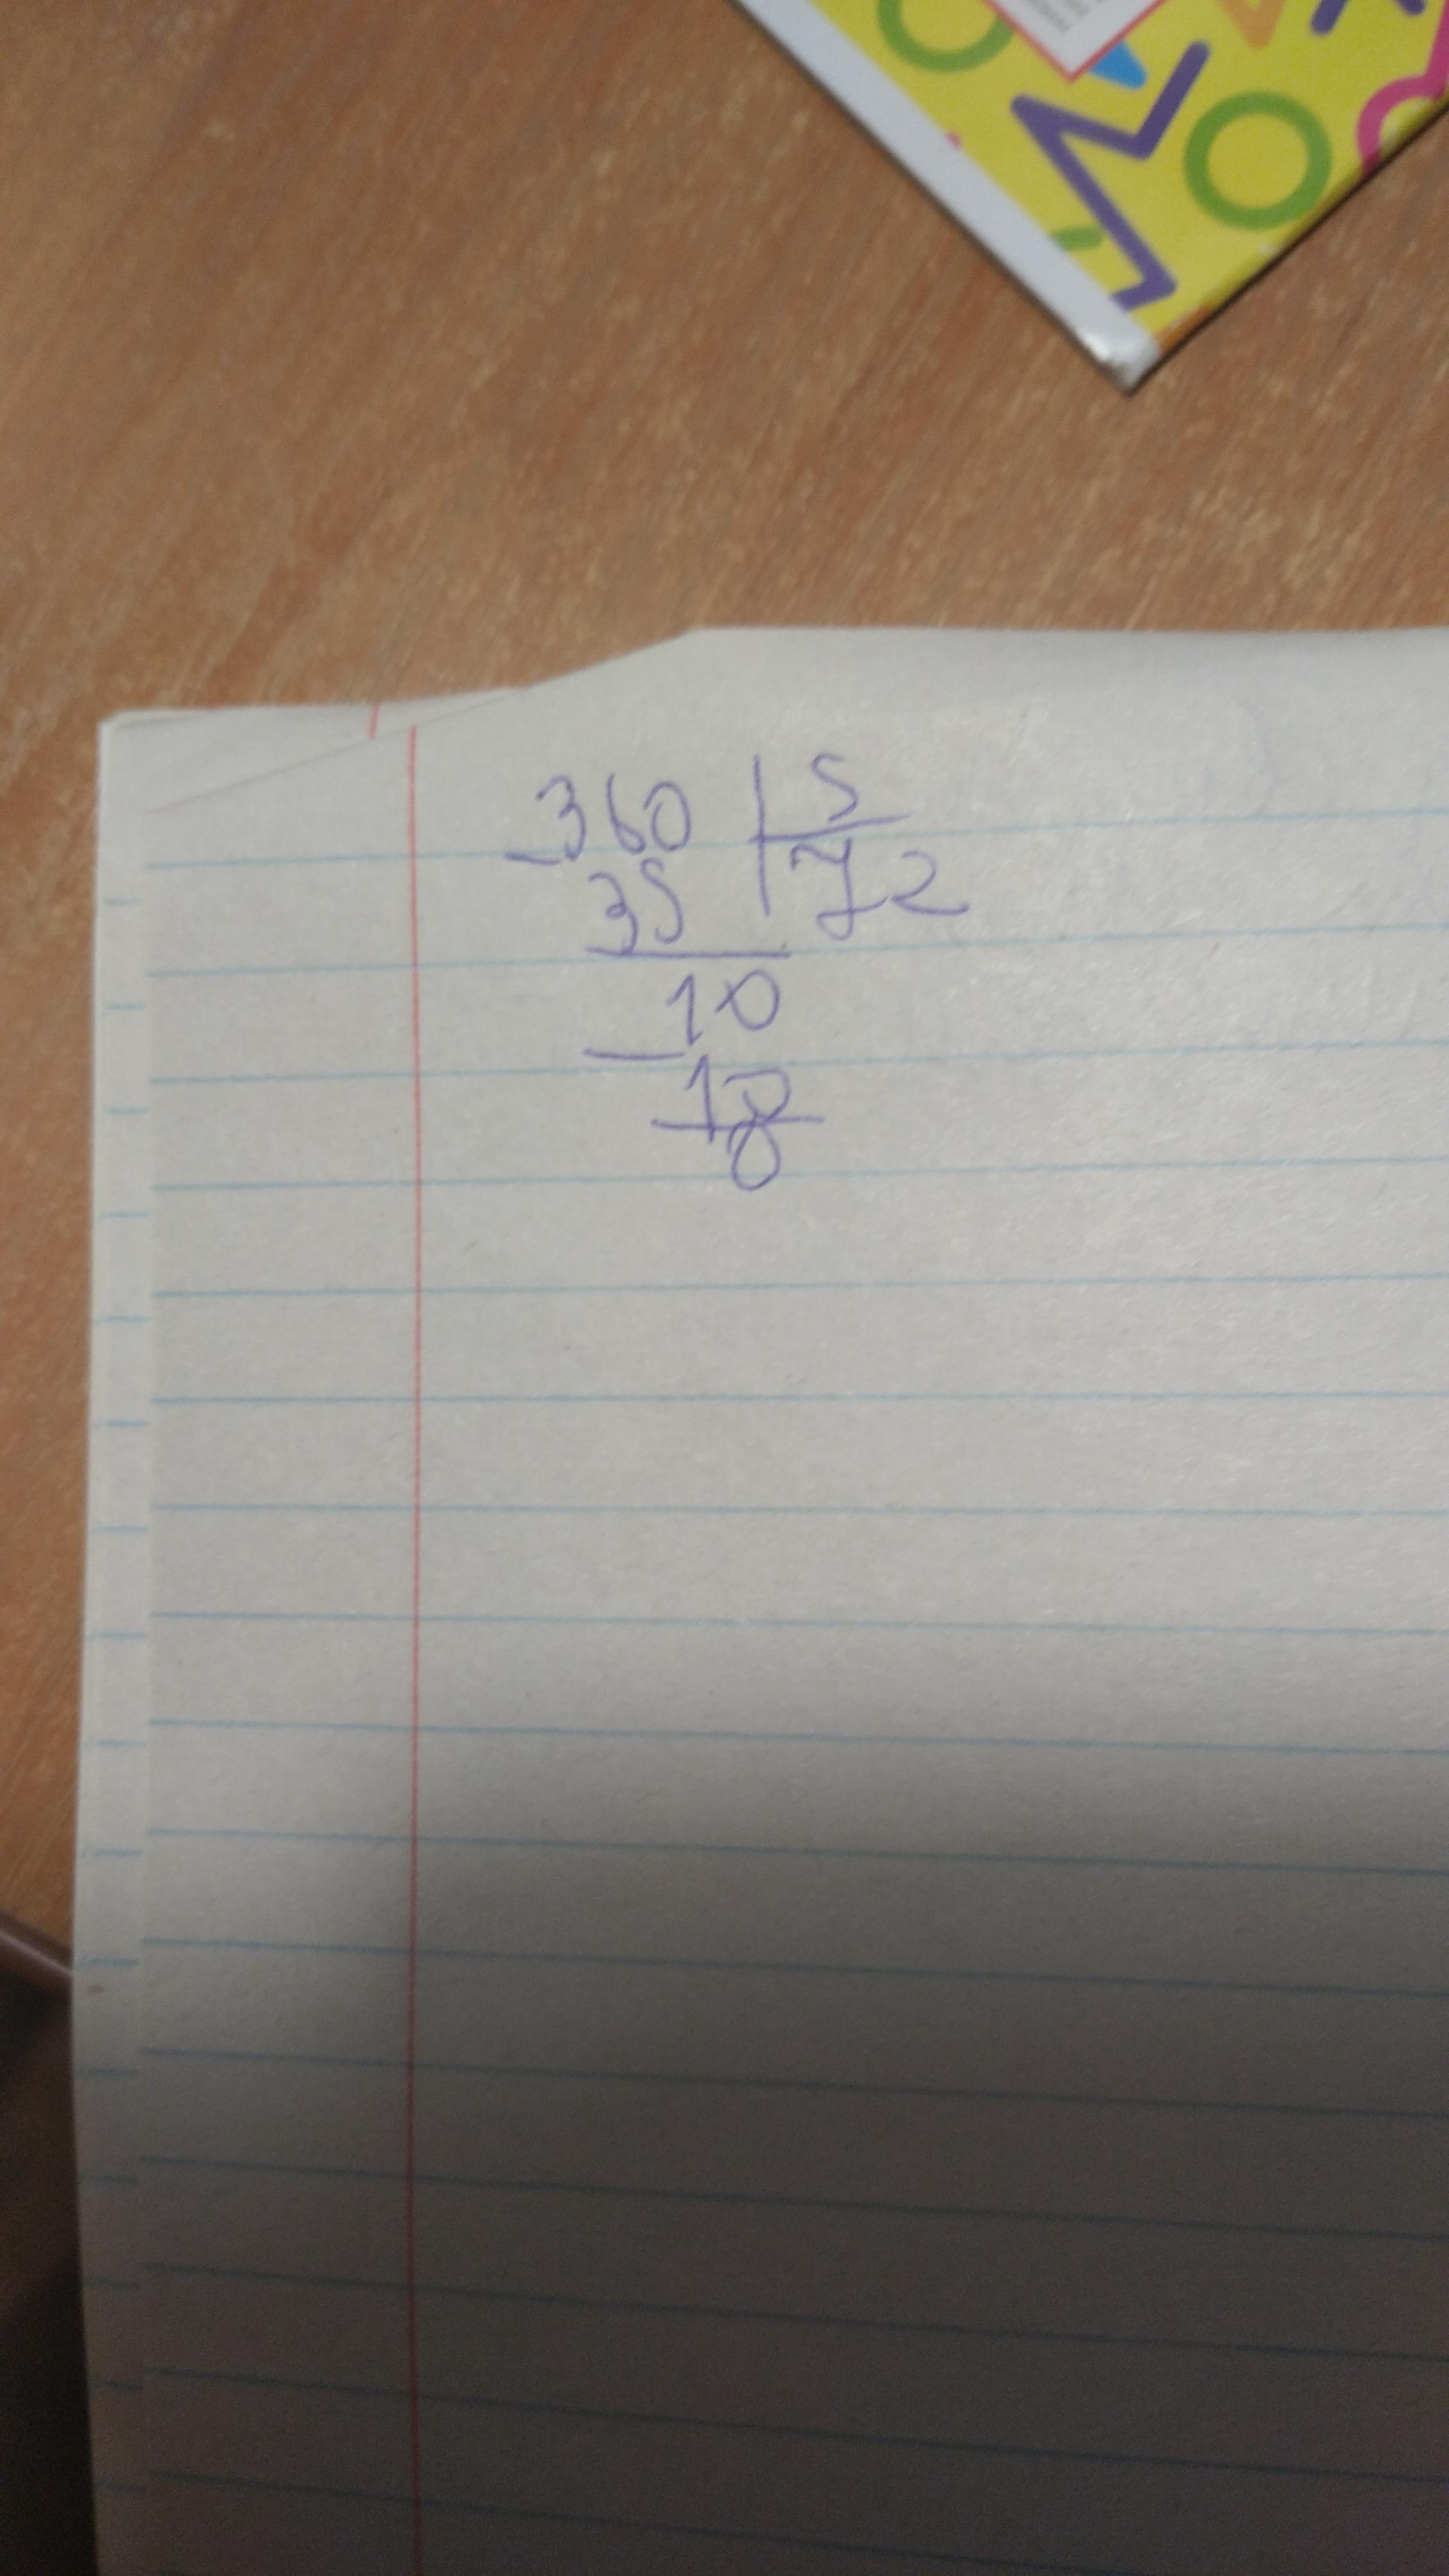 360 | 5
- 35 | 72
10
- 10
0